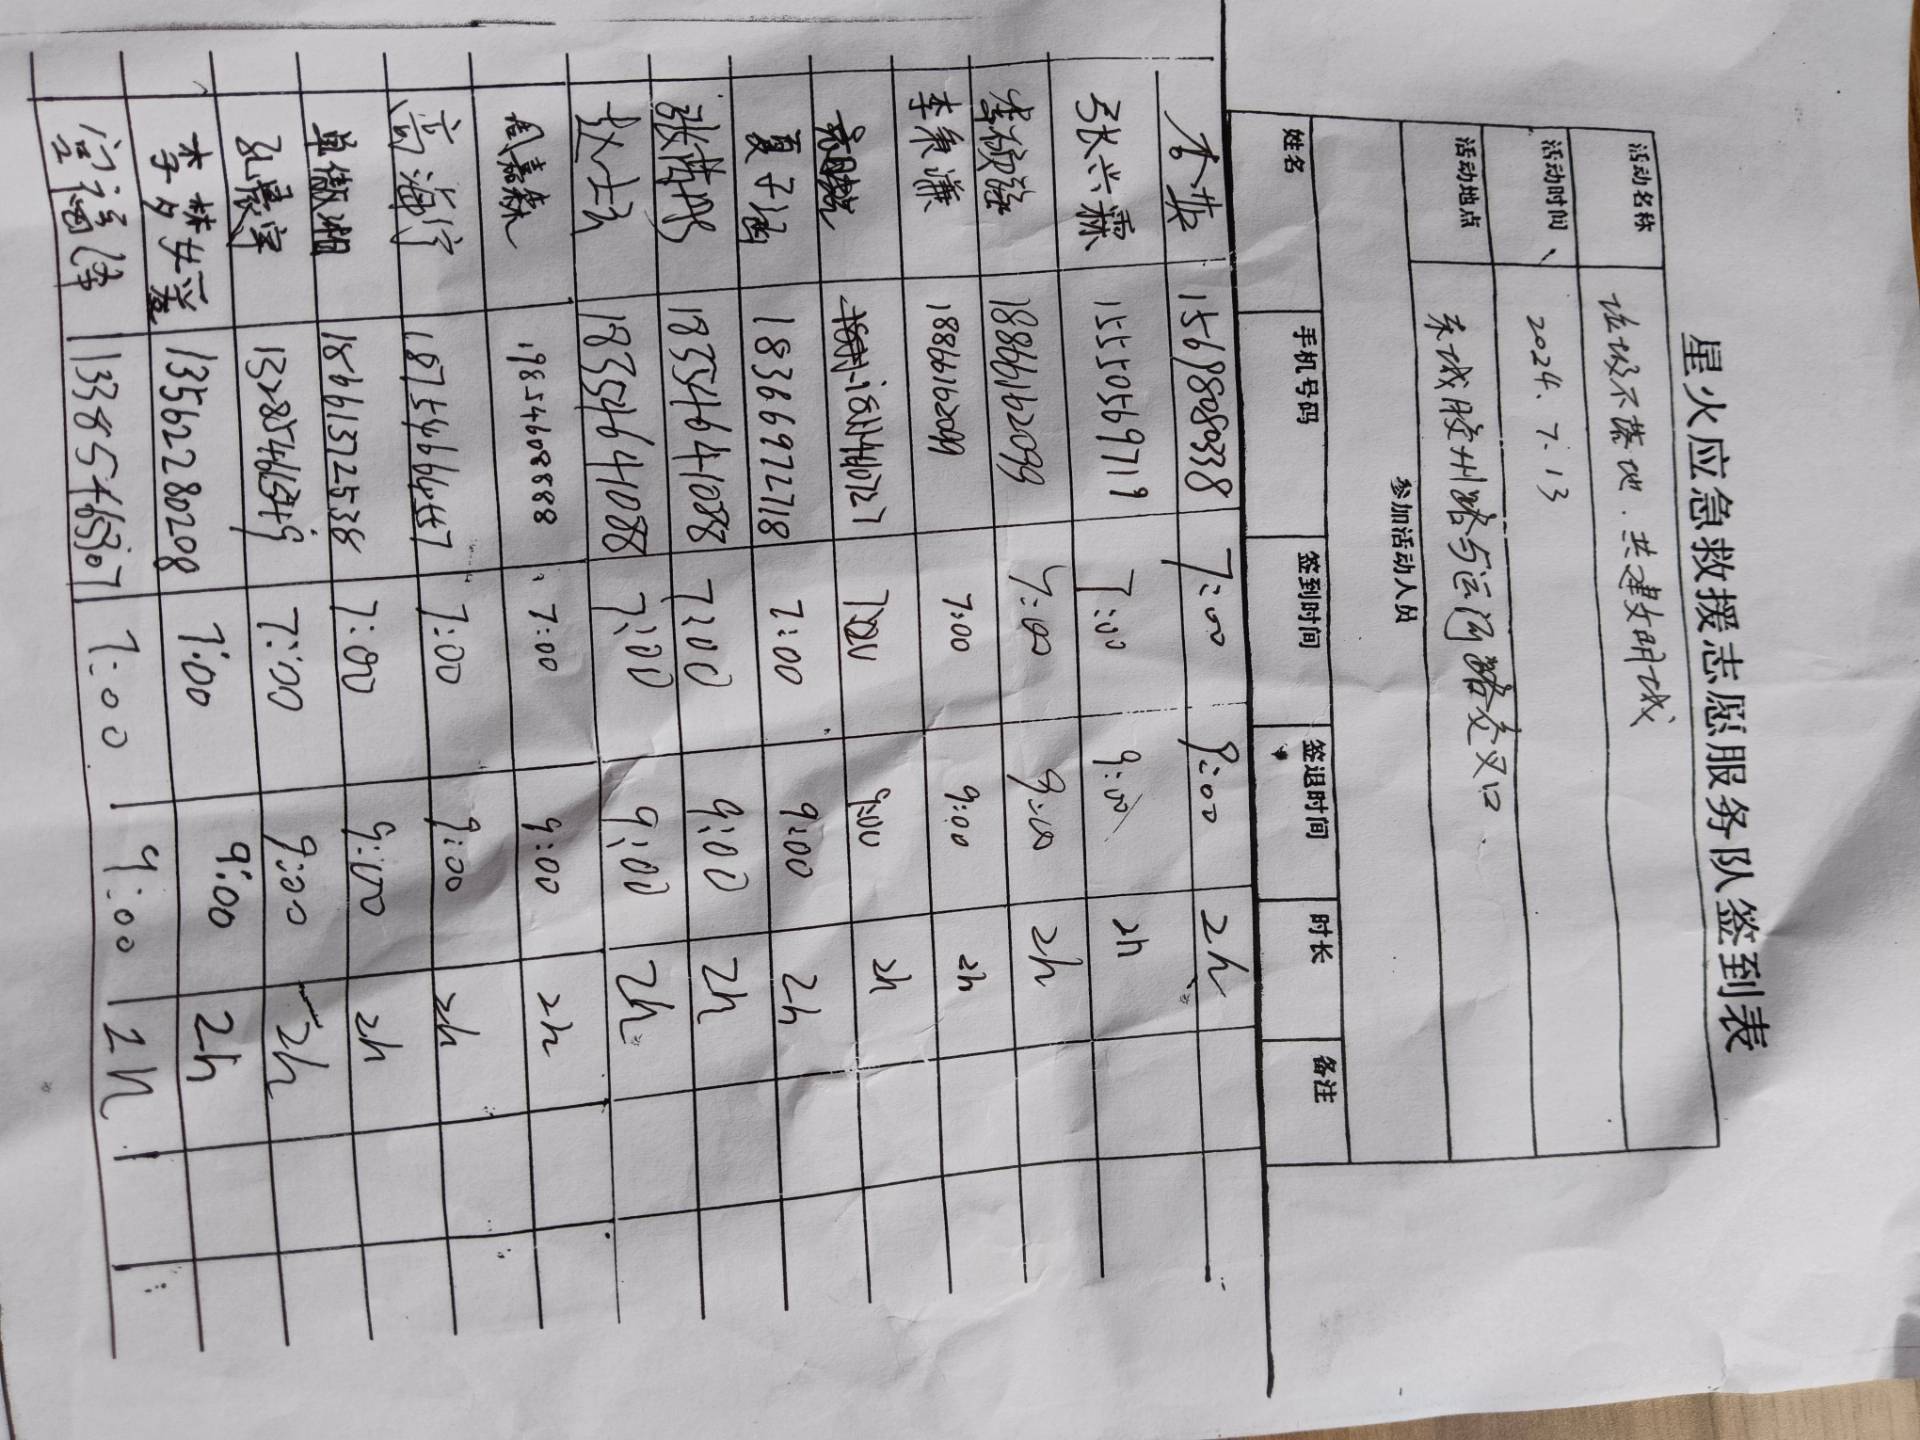 星火应急救援志愿服务队签到表
活动名称 垃圾不落地.共建文明城
活动时间 2024.7.13
活动地点 东城胶州路与运河路交叉口
参加活动人员
姓名 手机号码 签到时间 签退时间 时长 备注
15698080338 7:00 9:00 2h
张兴霖 15550569719 7:00 9:00 2h
18866162099 7:00 9:00 2h
李秉谦 18866162099 7:00 9:00 2h
7:00 9:00 2h
夏子涵 18366972718 7:00 9:00 2h
18354641088 7:00 9:00 2h
赵士云 18354641088 7:00 9:00 2h
周嘉森 19854608888 7:00 9:00 2h
高瀚宇 7:00 9:00 2h
18661372538 7:00 9:00 2h
孔晨宇 7:00 9:00 2h
李梦 13562280208 7:00 9:00 2h
7:00 9:00 2h